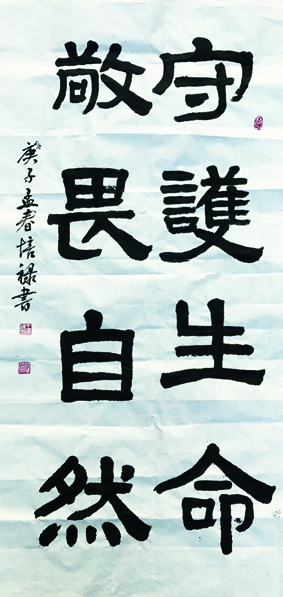 守護生命
敬畏自然
庚子孟春培禄書